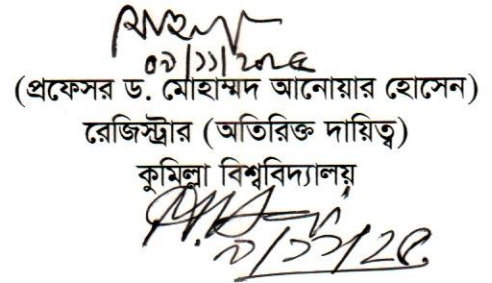 ০৯/১১/২০২৫
(প্রফেসর ড. মোহাম্মদ আনোয়ার হোসেন)
রেজিস্ট্রার (অতিরিক্ত দায়িত্ব)
কুমিল্লা বিশ্ববিদ্যালয়